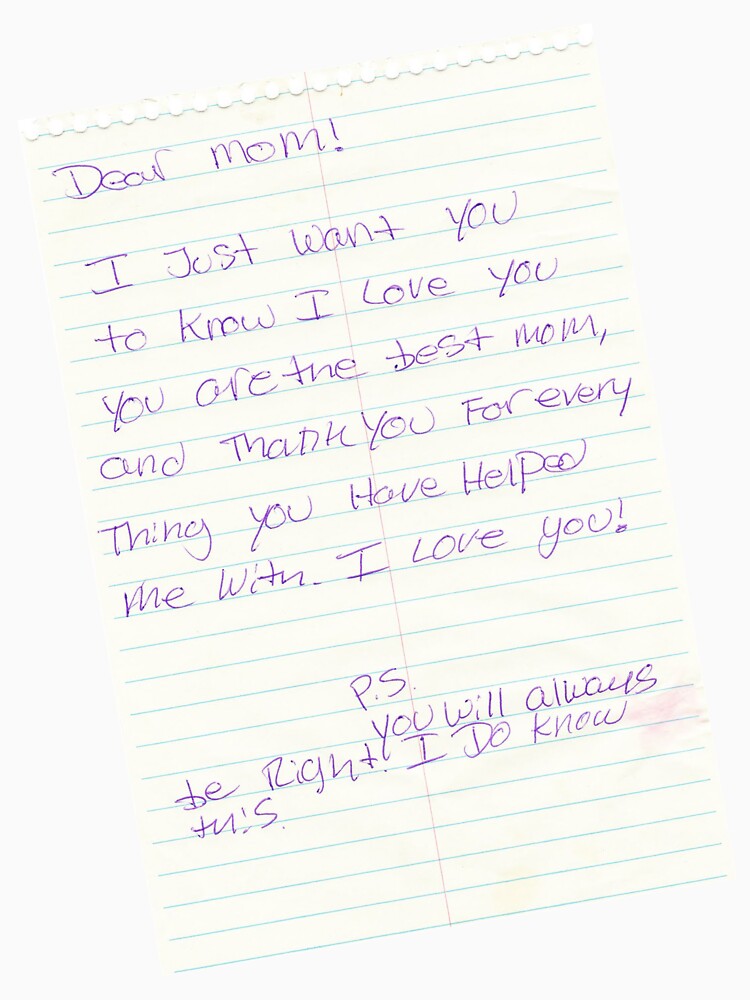 Dear mom!
I Just want you
to know I Love you
you are the best mom,
and Thank you For every
Thing you Have Helped
me with. I Love you!
P.S.
you will always
be Right! I Do know
this.